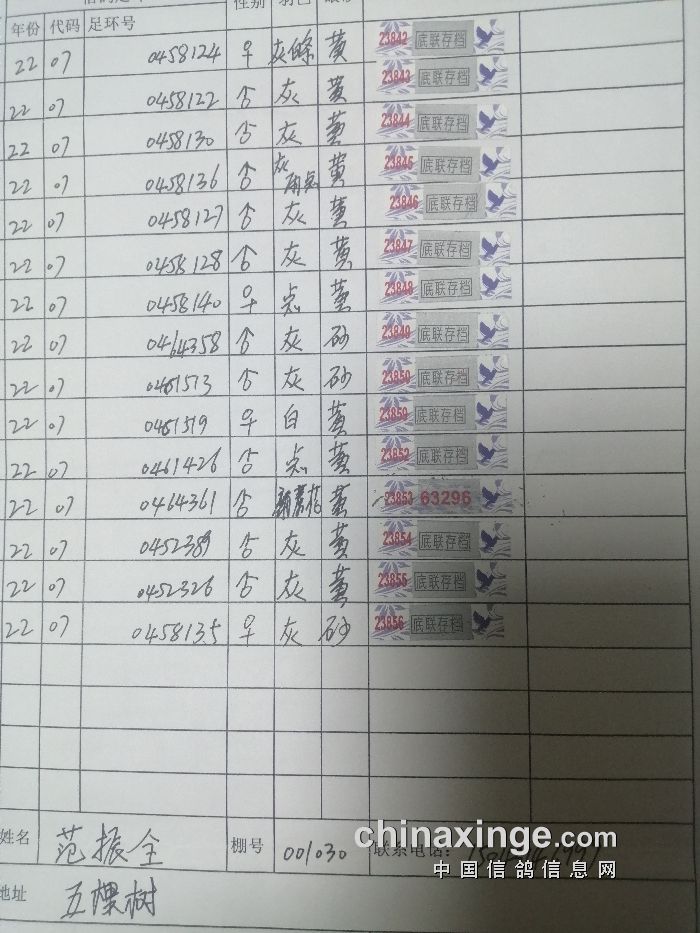 年份 代码 足环号 性别
22 07 0458124 灰條 黄 23842 底联存档
22 07 0458122 灰 黄 23843 底联存档
22 07 0458130 灰 黄 23844 底联存档
22 07 0458136 灰 黄 23845 底联存档
22 07 0458127 灰 黄 23846 底联存档
22 07 0458128 灰 黄 23847 底联存档
22 07 0458140 点 黄 23848 底联存档
22 07 0464358 灰 砂 23849 底联存档
22 07 0461513 灰 砂 23850 底联存档
22 07 0461519 白 黄 底联存档
22 07 0461426 点 黄 23852 底联存档
22 07 0464361 黄 23853 63296
22 07 0452389 灰 黄 23854 底联存档
22 07 0452326 灰 黄 23855 底联存档
22 07 0458135 灰 砂 23856 底联存档
姓名 范振全 棚号 001030 联系电话：
chinaxinge.com
中国信鸽信息网
地址 五棵树